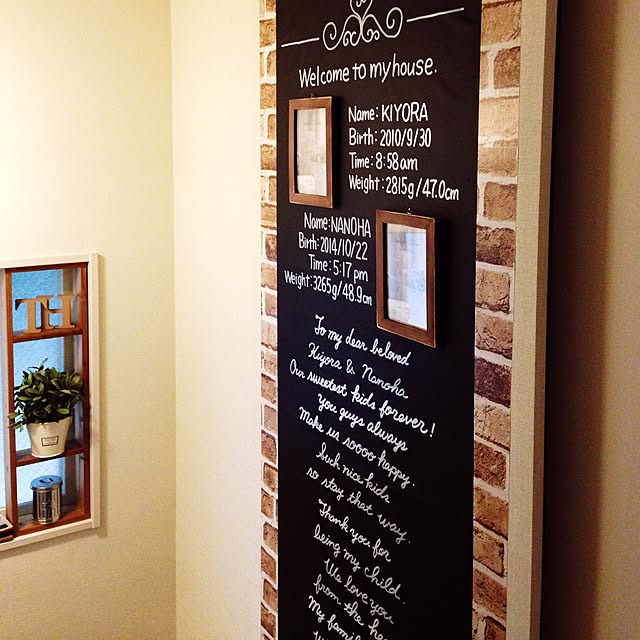 Welcome to my house.
Name: KIYORA
Birth: 2010/9/30
Time: 8:58am
Weight: 2815g/47.0cm
Name: NANOHA
Birth: 2014/10/22
Time: 5:17 pm
Weight: 3265g/48.9cm
To my dear beloved
Kiyora & Nanoha
Our sweetest kids forever!
You guys always
Make us soooo happy.
Such nice kids
so stay that way.
Thank you for
being my child.
We love you
from the
My
TH